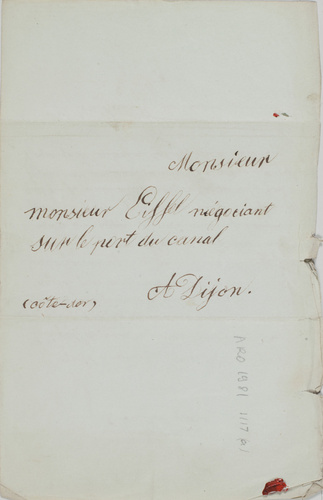 Monsieur
monsieur Eiffel négociant
sur le port du canal
A Dijon.
(côte-dor)
ARO 1981 1117 P/